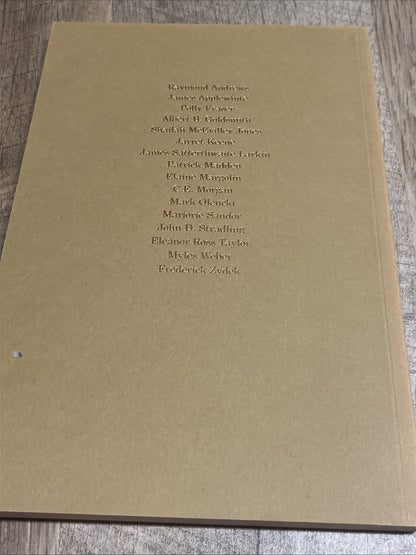 Raymond Andrews
James Applewhite
Polly Fraser
Albert B. Goldsmith
Shailah McEvilley Jones
Jarret Keene
James Satterthwaite Larkin
Patrick Madden
Elaine Margolin
C.E. Morgan
Mark Olencki
Marjorie Sandor
John D. Stradling
Eleanor Ross Taylor
Myles Weber
Frederick Zydek